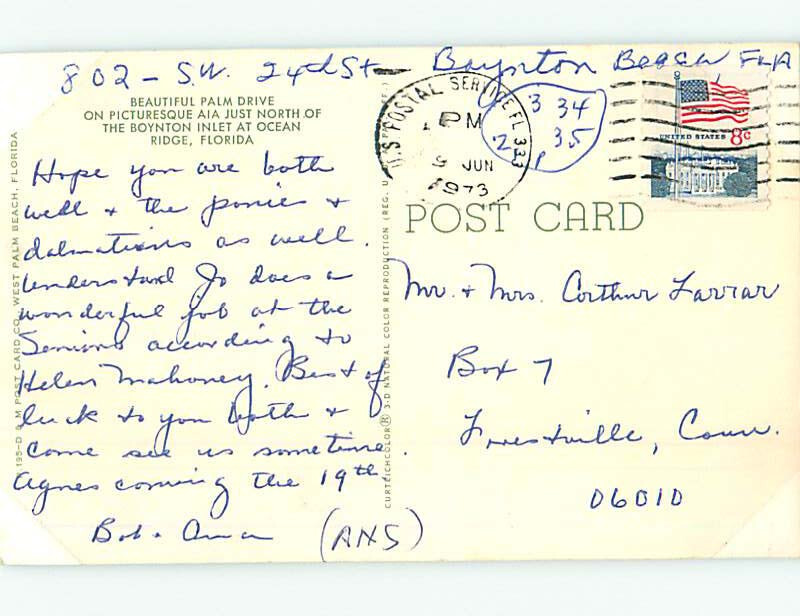 802 - S.W. 24th St - Boynton Beach, FLA
BEAUTIFUL PALM DRIVE
ON PICTURESQUE A1A JUST NORTH OF
THE BOYNTON INLET AT OCEAN
RIDGE, FLORIDA
Hope you are both
well + the ponies +
dalmatians as well.
Understand Jo does a
wonderful job at the
Seniors according to
Helen Mahoney. Best of
luck to you both +
come see us sometime.
Agnes coming the 19th
Bob + (ANS)
195-D & M POST CARD CO. WEST PALM BEACH, FLORIDA
CURTEICHCOLOR® 3-D NATURAL COLOR REPRODUCTION (REG. U
U.S. POSTAL SERVICE FL 333
PM
9 JUN
1973
3 34
2 35
UNITED STATES 8c
POST CARD
Mr. + Mrs. Corthur Farrar
Box 7
Forestville, Conn.
06010